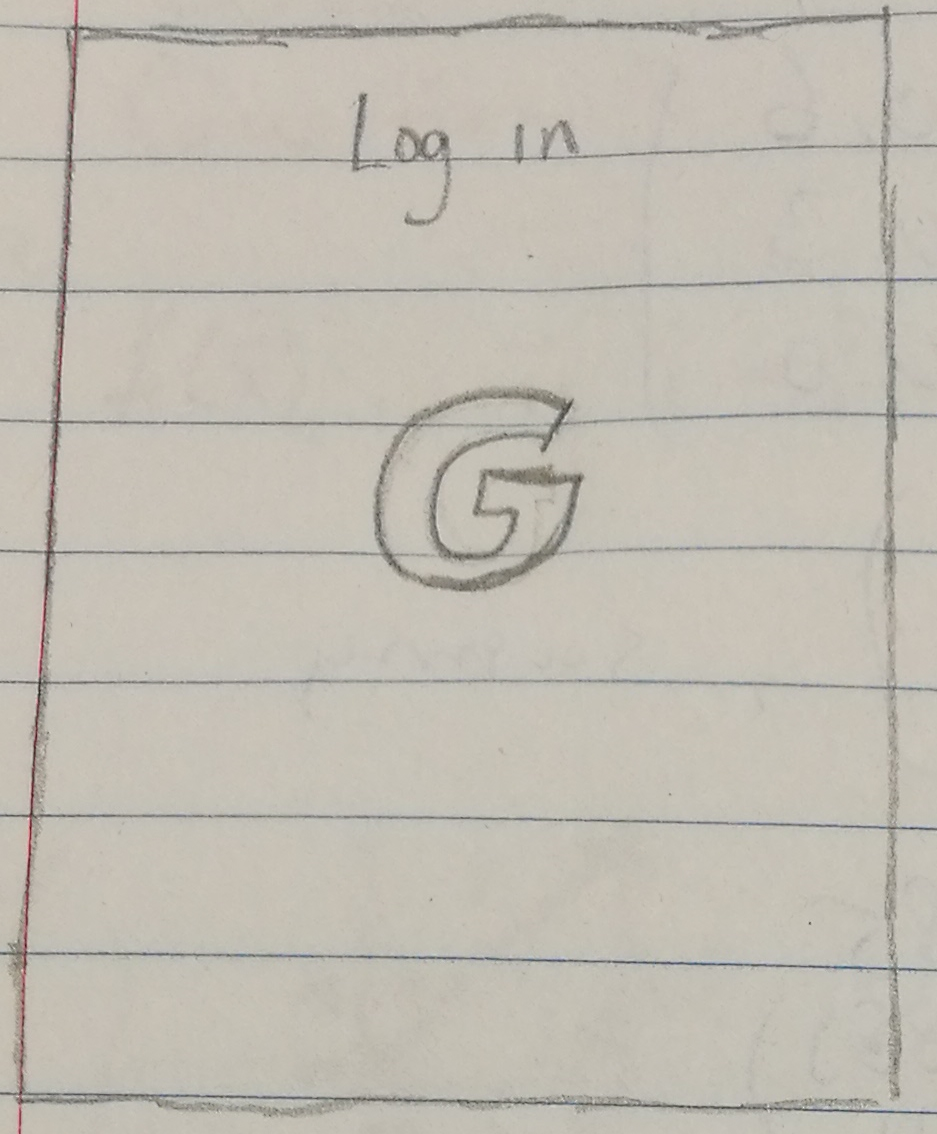 Log in
G